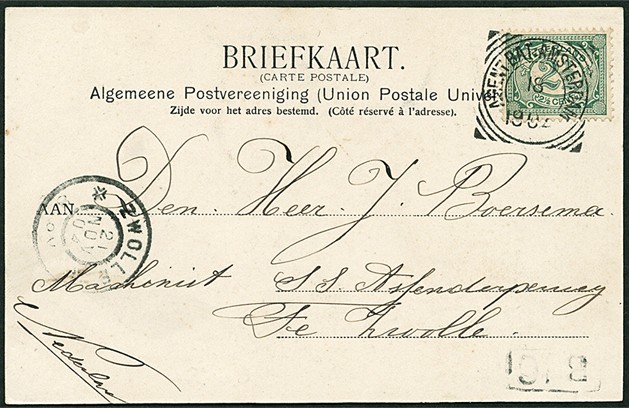 BRIEFKAART.
(CARTE POSTALE)
Algemeene Postvereeniging (Union Postale Unive
Zijde voor het adres bestemd. (Côté réservé à l'adresse).
AMSTERDAM
18
190
2½ CENT
AAN
ZWOLLE
21
NOV
Den Heer J. Boersema
Machinist S.S. Assendorperweg
Te Zwolle.
Nederland